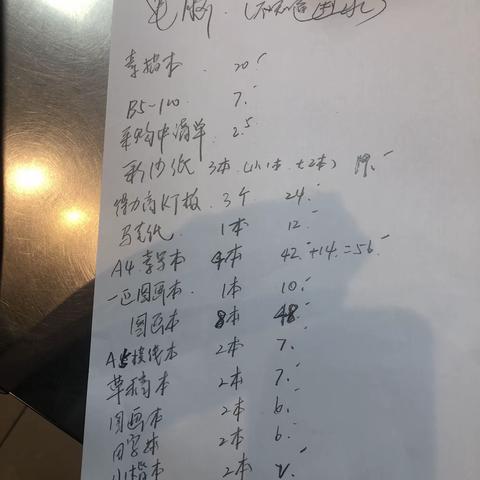 素描本 20.
B5-100 7.
采购申请单 2.5
彩沙纸 3本 (小1本 大2本)
得力高KT板 3个 24.
马克纸 1本 12.
A4素写本 4本 42.+14.=56.
一正图画本 1本 10.
图画本 8本 48.
A5横线本 2本 7.
草稿本 2本 7.
图画本 2本 6.
田字本 2本 6.
小楷本 2本